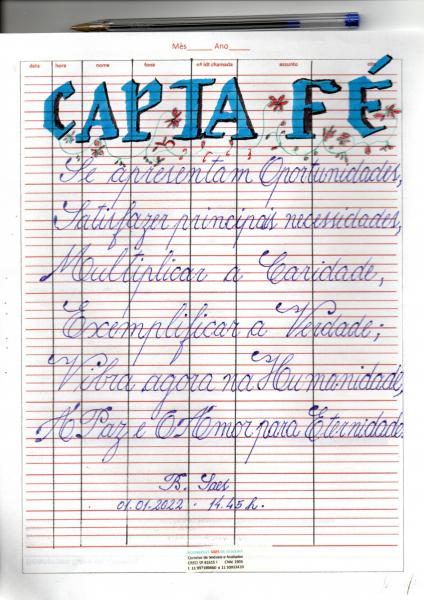 Mês_____ Ano_____
data hora nome fone nº idt chamada assunto
CAPTA FÉ
Se apresentam Oportunidades,
Satisfazer principais necessidades,
Multiplicar a Caridade,
Exemplificar a Verdade;
Vibra agora na Humanidade,
A Paz e O Amor para Eternidade.
B. Saes
01.01.2022 - 14.45 h.
Corretor de Imóveis e Avaliador